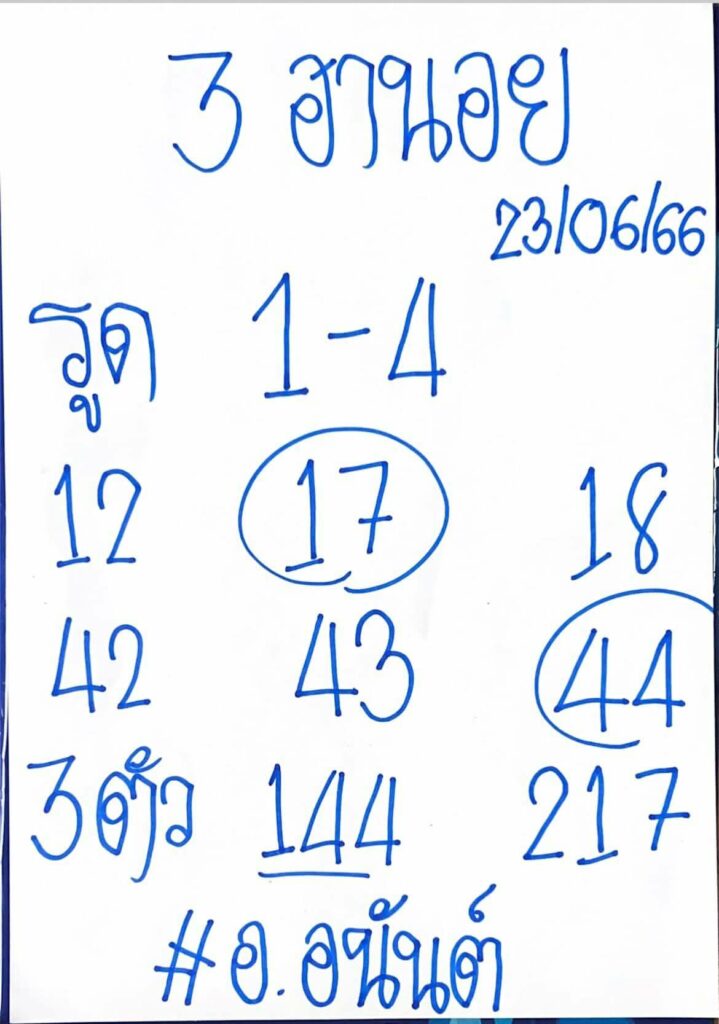 3 ฮานอย
23/06/66
รูด 1-4
12 17 18
42 43 44
3ตัว 144 217
#อ.อนันต์